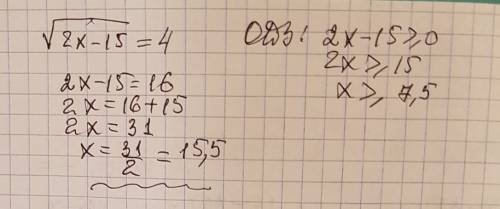 √2x-15 = 4
2x-15=16
2x=16+15
2x=31
x=31/2=15,5
ОДЗ: 2x-15≥0
2x≥15
x≥7,5